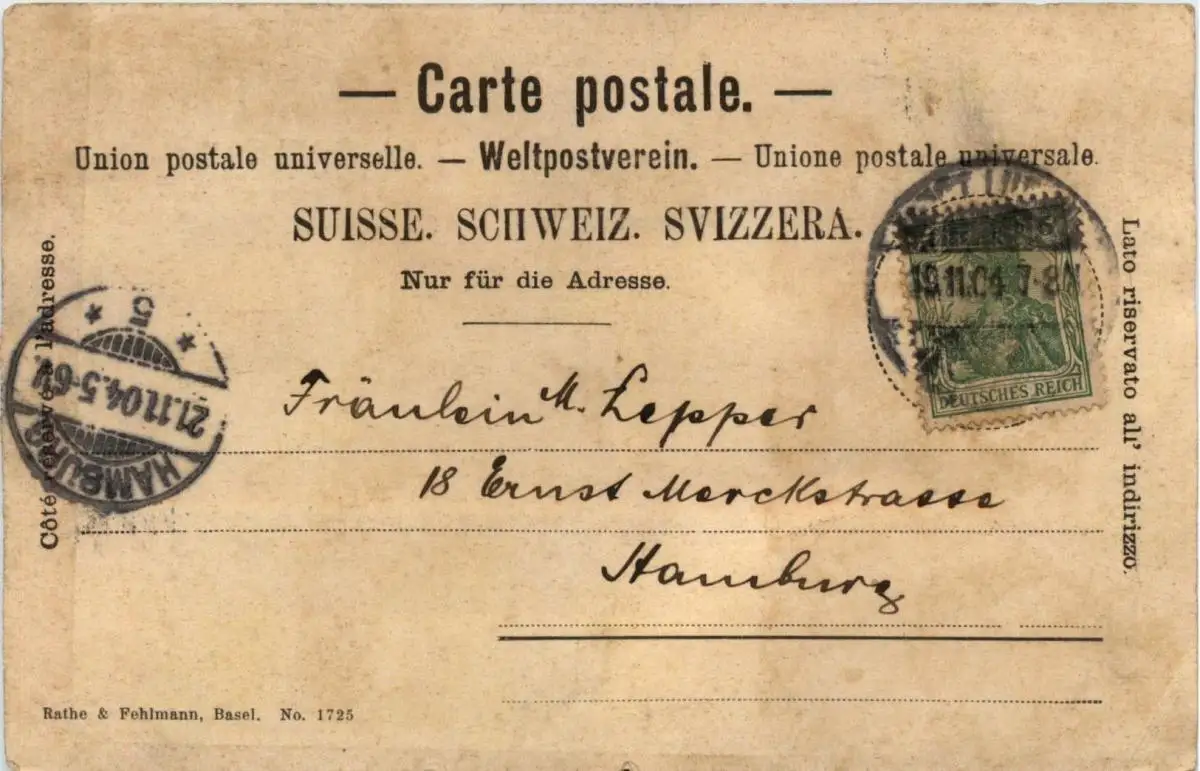 — Carte postale. —
Union postale universelle. — Weltpostverein. — Unione postale universale.
SUISSE. SCHWEIZ. SVIZZERA.
Nur für die Adresse.
19.11.04.7-8N
DEUTSCHES REICH
Côté réservé à l'adresse.
Lato riservato all' indirizzo.
HAMBURG
21.11.04.5-6N
* 5 *
Fräulein M. Lepper
18 Ernst Merckstrasse
Hamburg
Rathe & Fehlmann, Basel. No. 1725